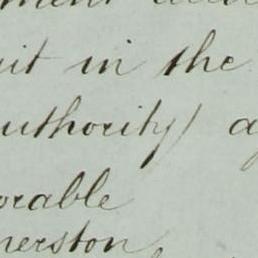 ment
uit in the
uthority) a
orable
nerston